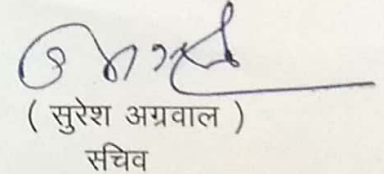 ( सुरेश अग्रवाल )
सचिव